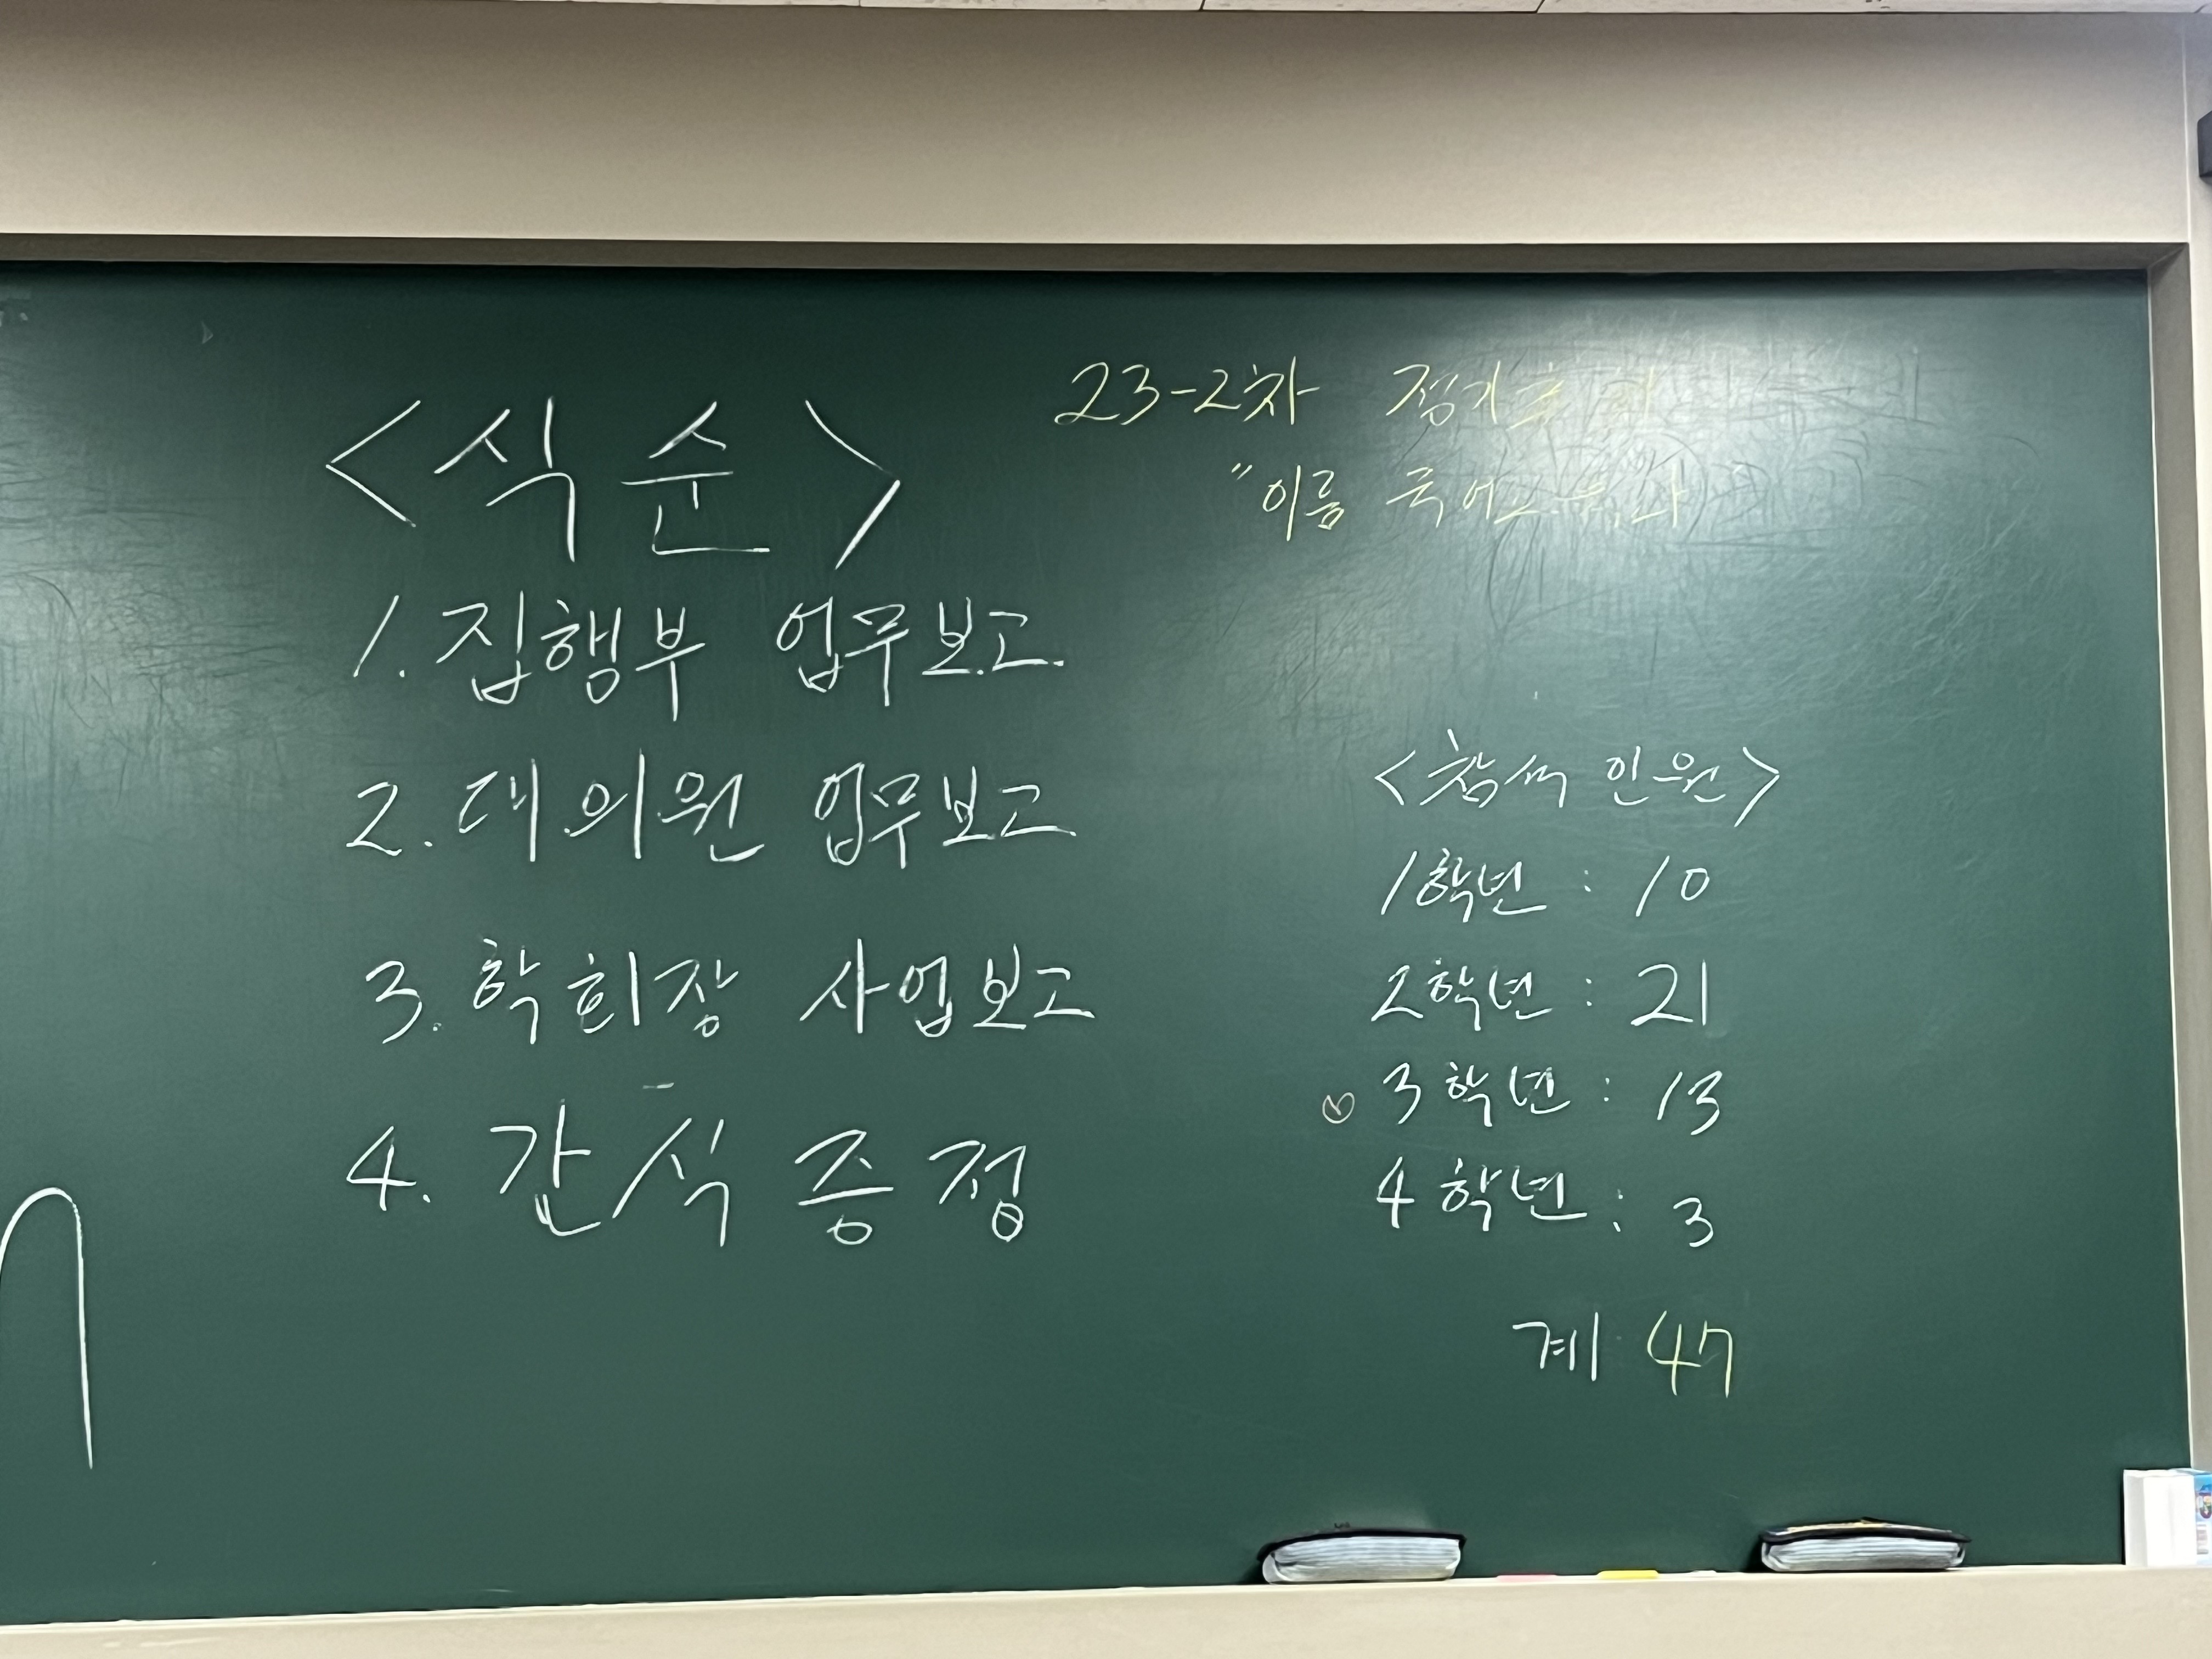 23-2차
"이름
<식순>
1. 집행부 업무보고.
2. 대의원 업무보고.
3. 학회장 사업보고
4. 간식 증정
<참석 인원>
1학년 : 10
2학년 : 21
3학년 : 13
4학년 : 3
계 47